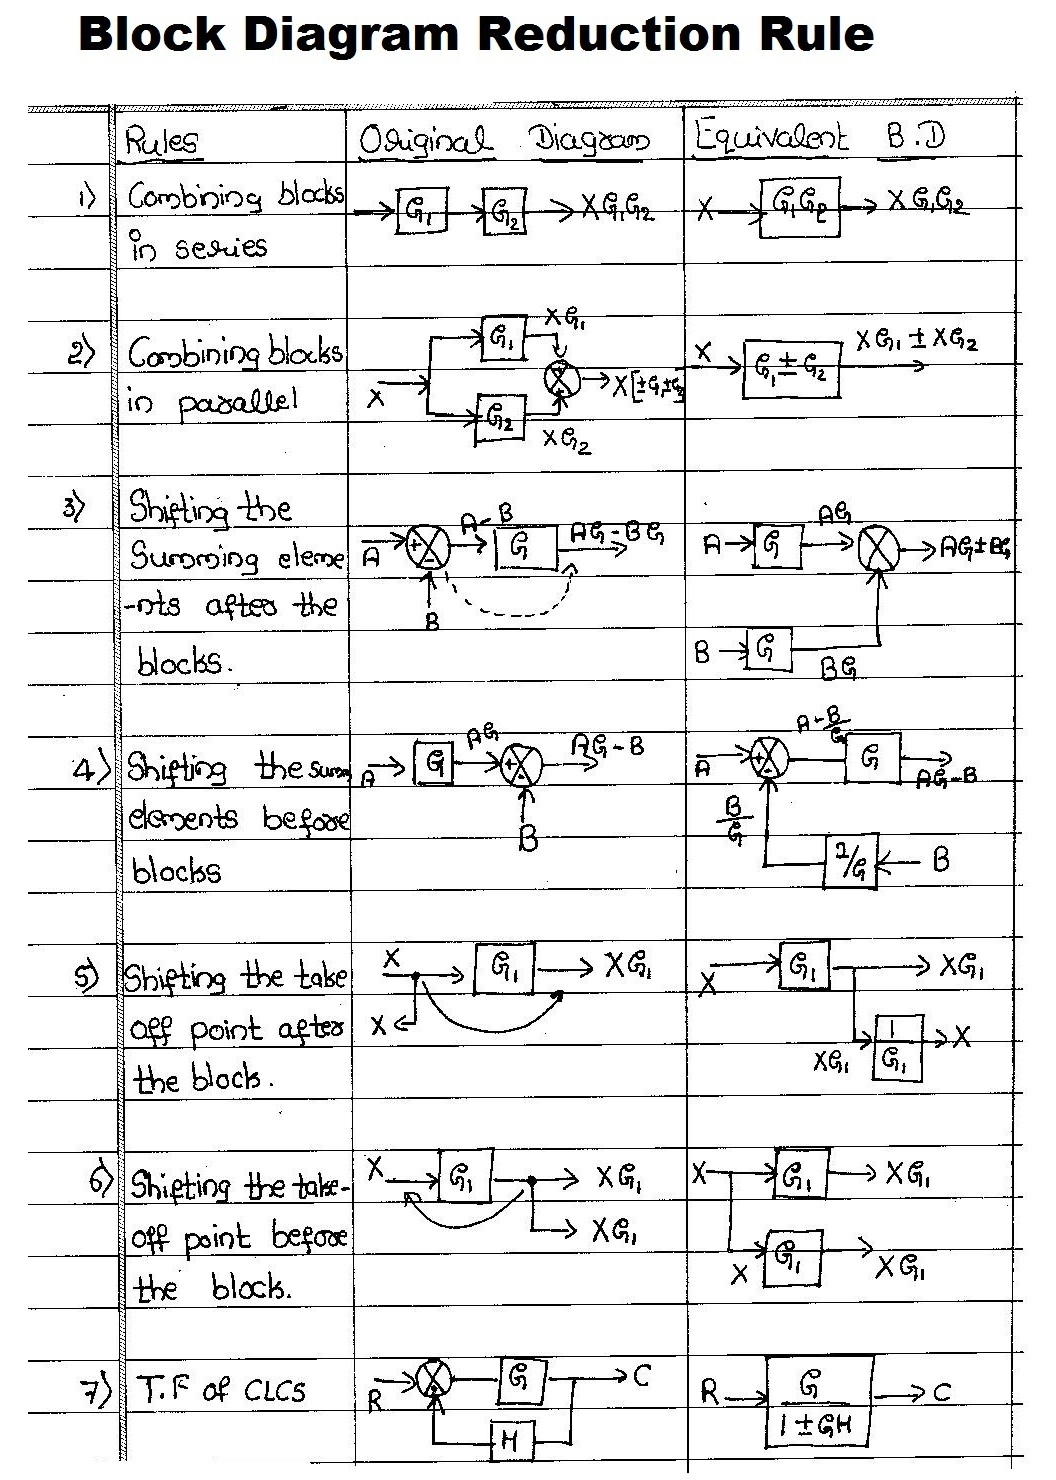 Block Diagram Reduction Rule
Rules Original Diagram Equivalent B.D
1) Combining blocks in series
G1 G2 XG1G2
X G1G2 XG1G2
2) Combining blocks in parallel
X G1 XG1 G2 XG2
X G1 ± G2 XG1 ± XG2
3) Shifting the
Summing eleme
-nts after the
blocks.
A + - A-B G AG-BG
B
A G AG AG±BG
B G BG
4) Shifting the summ
elements before
blocks
A G AG + - AG-B
B
A + - A-B/G G AG-B
B/G 1/G B
5) Shifting the take
off point after
the block.
X G1 XG1
X
X G1 XG1
XG1 1/G1 X
6) Shifting the take-
off point before
the block.
X G1 XG1
XG1
X G1 XG1
X G1 XG1
7) T.F of CLCS
R G C
H
R G/1±GH C